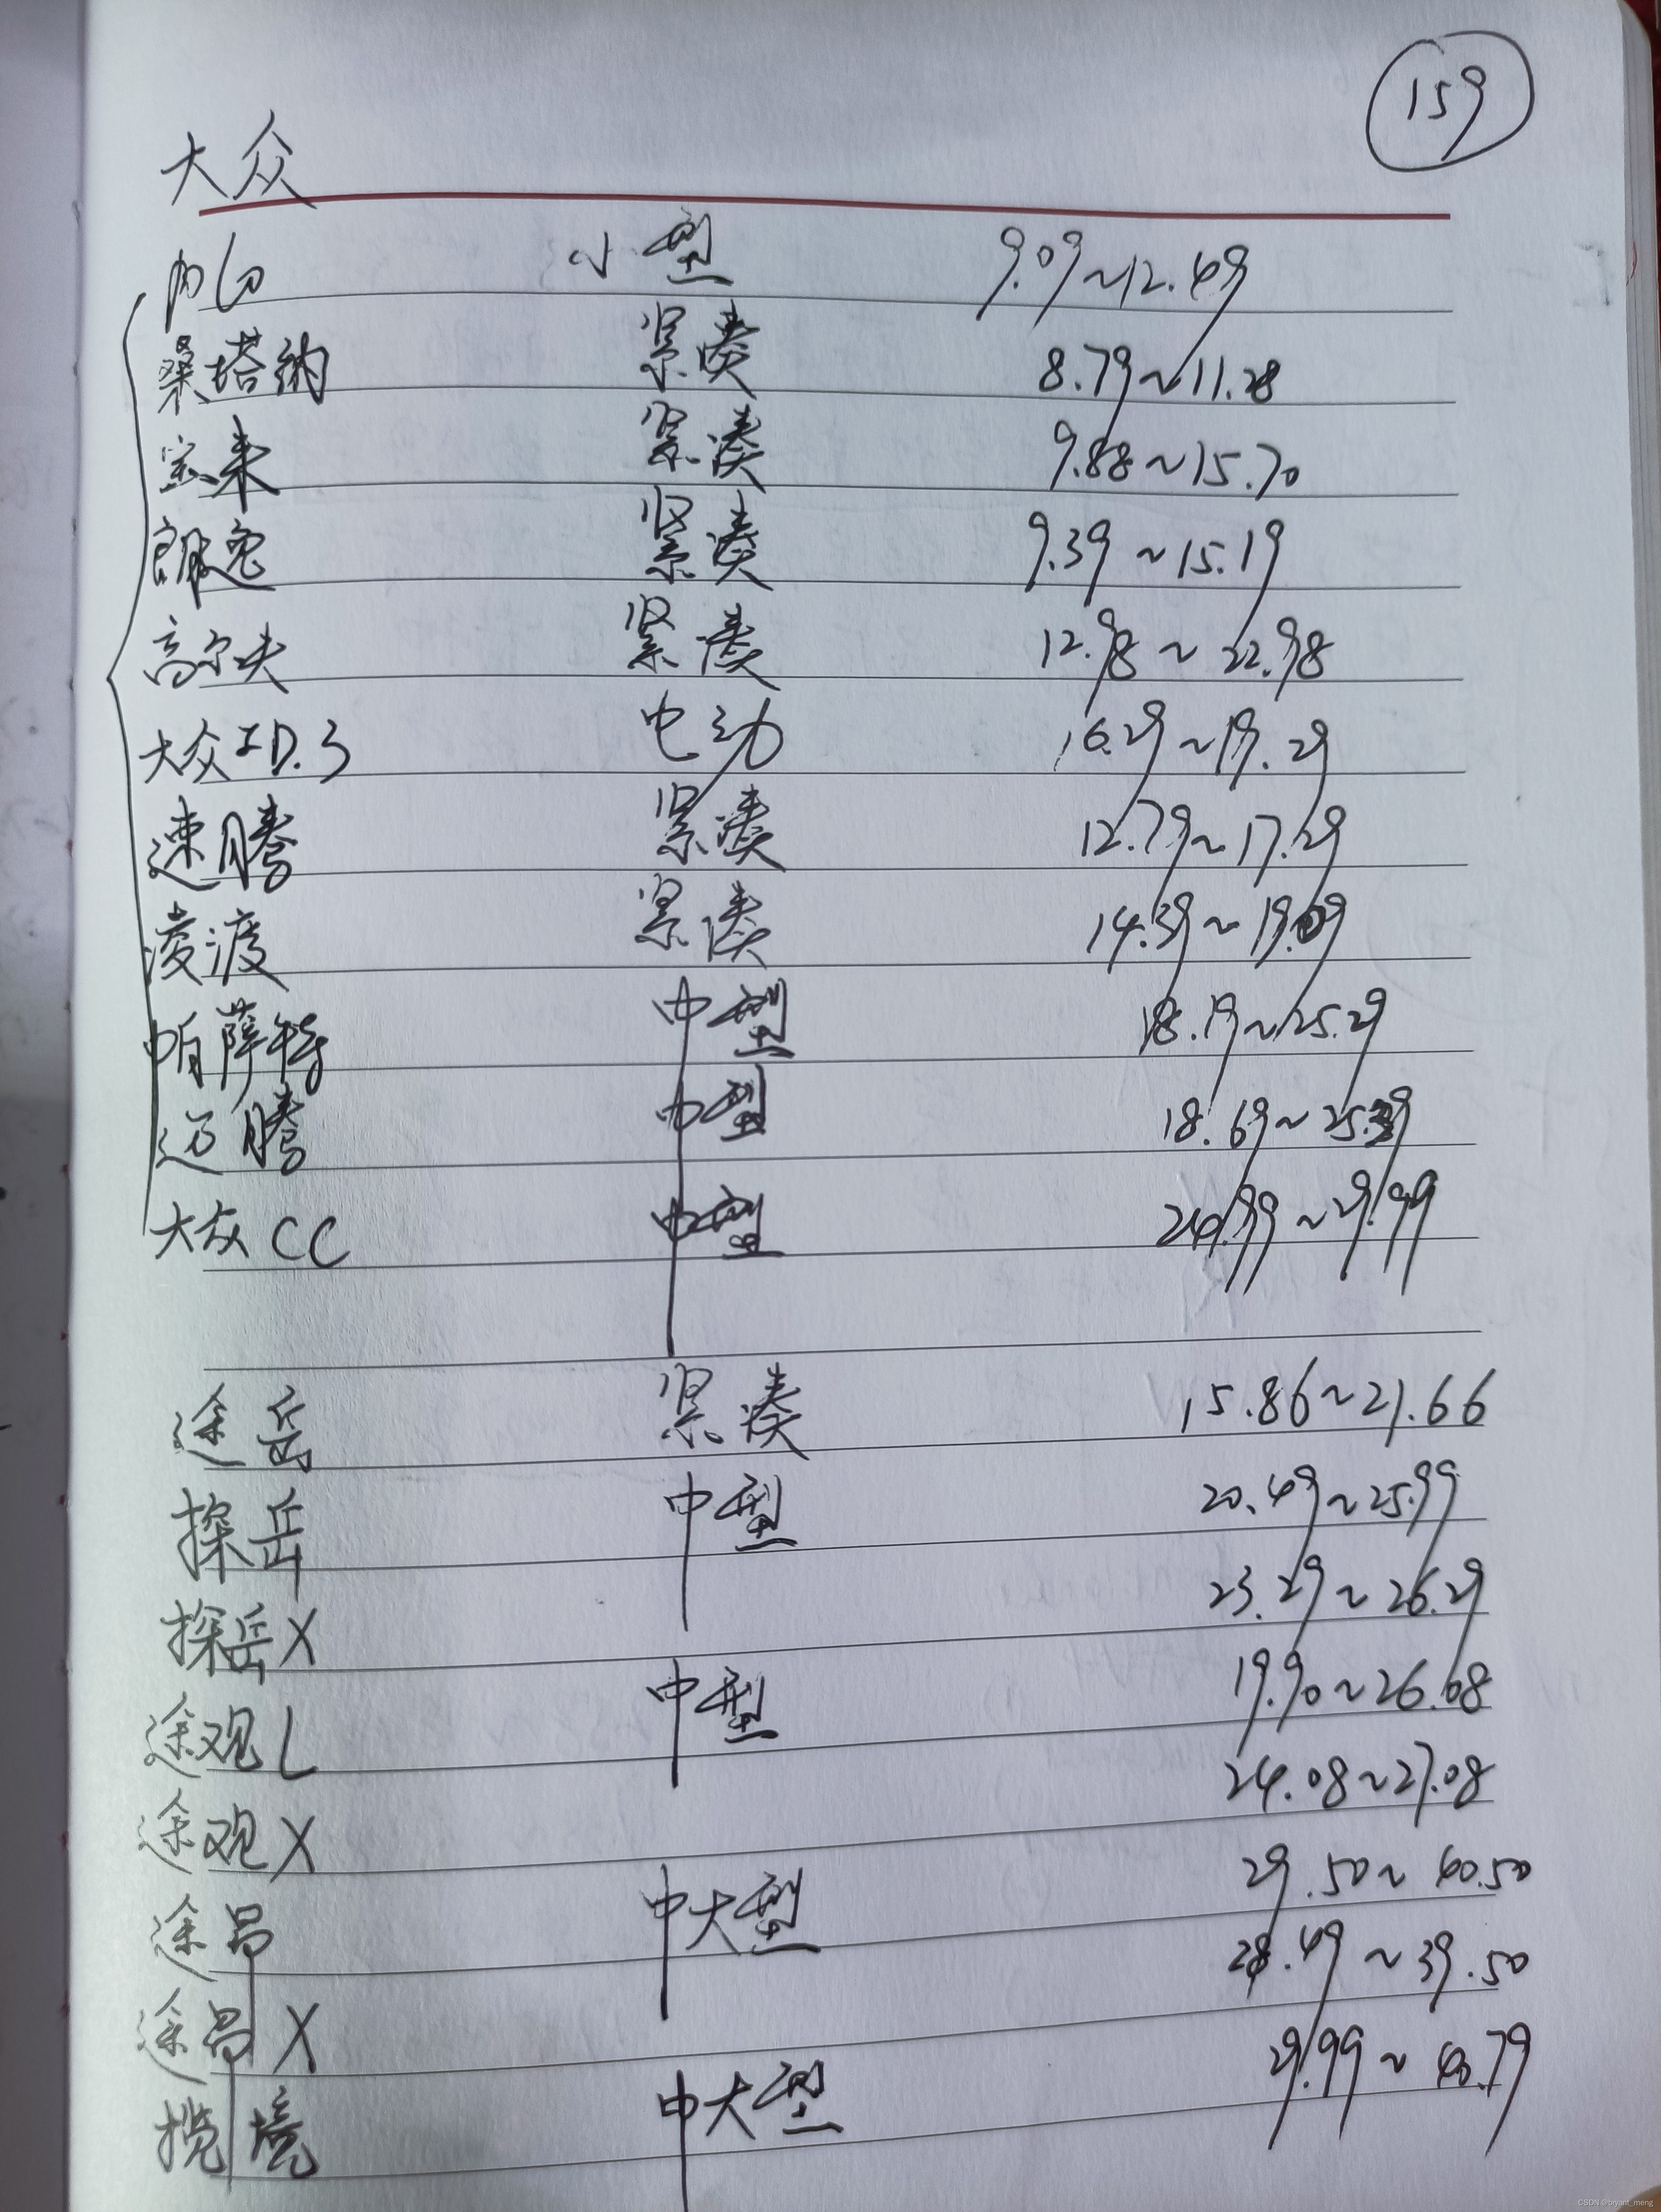 159
大众
帕 小型 9.09~12.49
桑塔纳 紧凑 8.79~11.28
宝来 紧凑 9.88~15.70
朗逸 紧凑 9.39~15.19
高尔夫 紧凑 12.98~22.98
大众ID.3 电动 16.29~19.29
速腾 紧凑 12.79~17.29
凌渡 紧凑 14.39~19.09
帕萨特 中型 18.19~25.29
迈腾 中型 18.69~25.39
大众CC 中型 ~29.99
途岳 紧凑 15.86~21.66
探岳 中型 20.49~25.99
探岳X 23.29~26.29
途观L 中型 19.90~26.68
途观X 24.08~27.08
途昂 中大型 29.50~40.50
途昂X 28.49~39.50
揽境 中大型 29.99~40.79
CSDN @bryant_meng